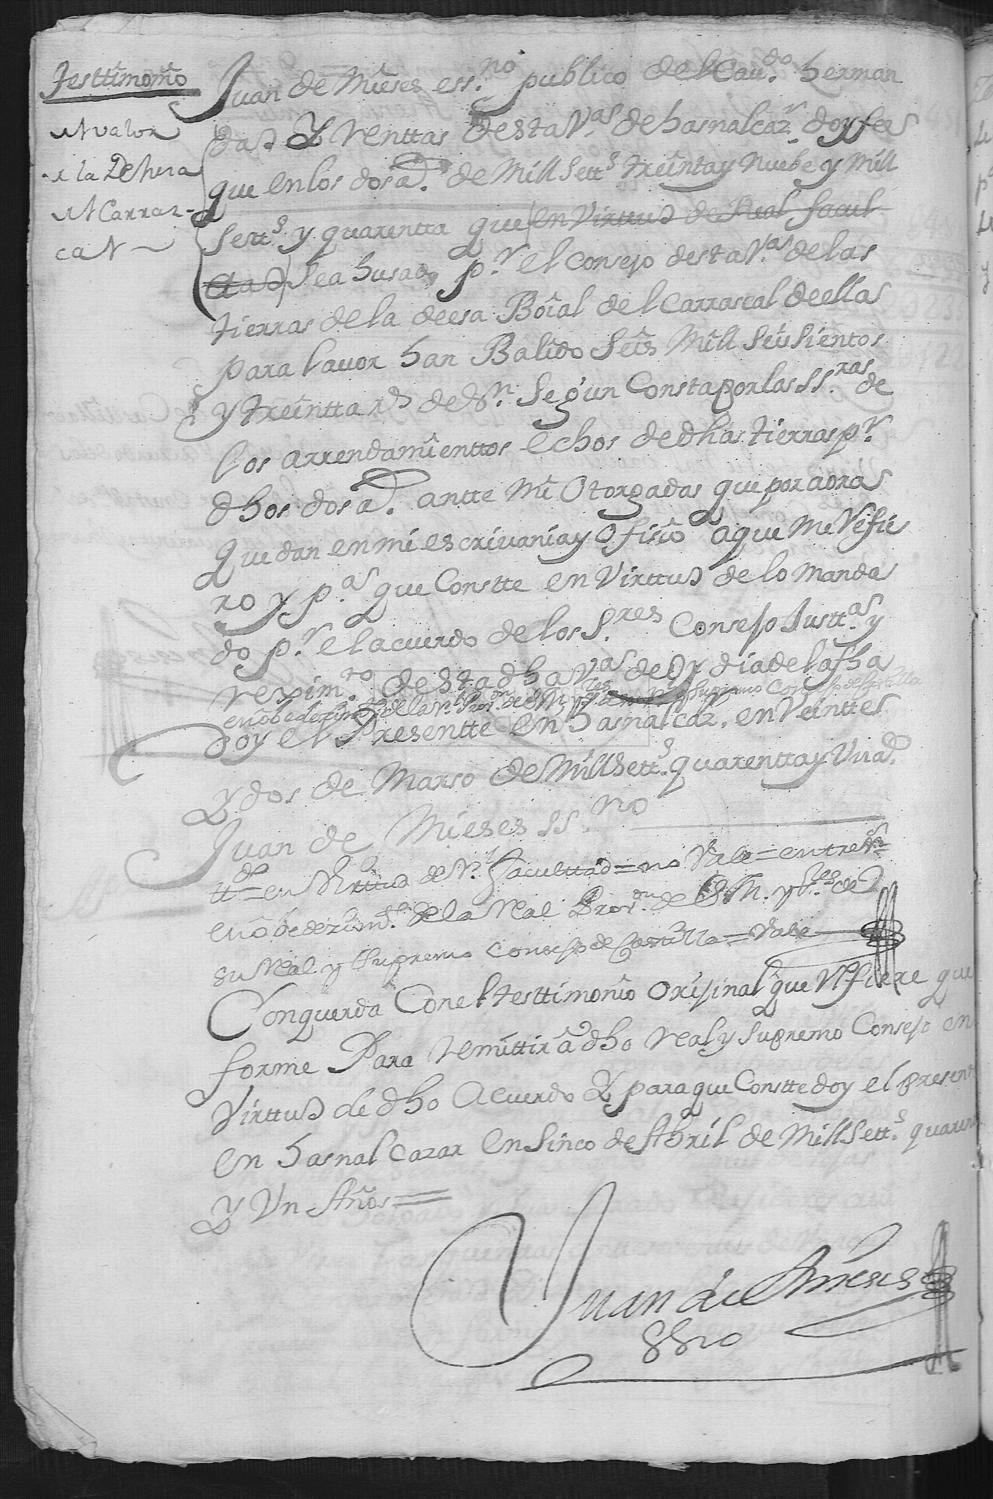 Testtimonio
el valor
de la Dehesa
el Carras-
cal
Juan de Mieses ess.no publico del Cav.do herman
dad Y Renttas desta V.a de hasnalcaz.r doy fee
que en los dos a.s de Mill Sett.s treinta y Nuebe y Mill
Sett.s y quarentta que en Virttud de Real facul
ttad se a husado p.r el Consejo desta V.a de las
tierras de la deesa Boial del Carrascal deellas
para lavor han Balido Seis Mill Seissientos
y treintta r.s de v.n Segun Consta por las ss.ras de
los arrendamienttos echos de dhas tierras p.r
dhos dos a.s antte Mi Otorgadas que por aora
quedan en mi escrivania y Ofisio a que Me Refie
ro y p.a que Constte en Virttud de lo Manda
do p.r el acuerdo de los S.res Consejo Justt.a y
reximi.to desta dha V.a de oy dia de la fha
en obedezim.to de la R.l Prov.on de S.M. y S.res de su Supremo Consejo de Castilla
doy el Presentte en hasnalcaz.r en Veintte
y dos de Marso de Mill Sett.s quarentta y Un a.s
Juan de Mieses ss.no
tt.do = en Virttud de R.l facultad = no Vale = entre R.s =
en obedezim.to de la Real Prov.on de S.M. y S.res de
su Real y Supremo Consejo de Castilla = Vale
Conquerda Con el testtimonio orijinal que Refiere que
forme Para remittir a dho real y Supremo Consejo en
Virttud de dho Acuerdo Y para que Constte doy el present
en hasnalcazar en Sinco de Abril de Mill Sett.s quaren
Y Un Años =
Juan de Mieses
ssno